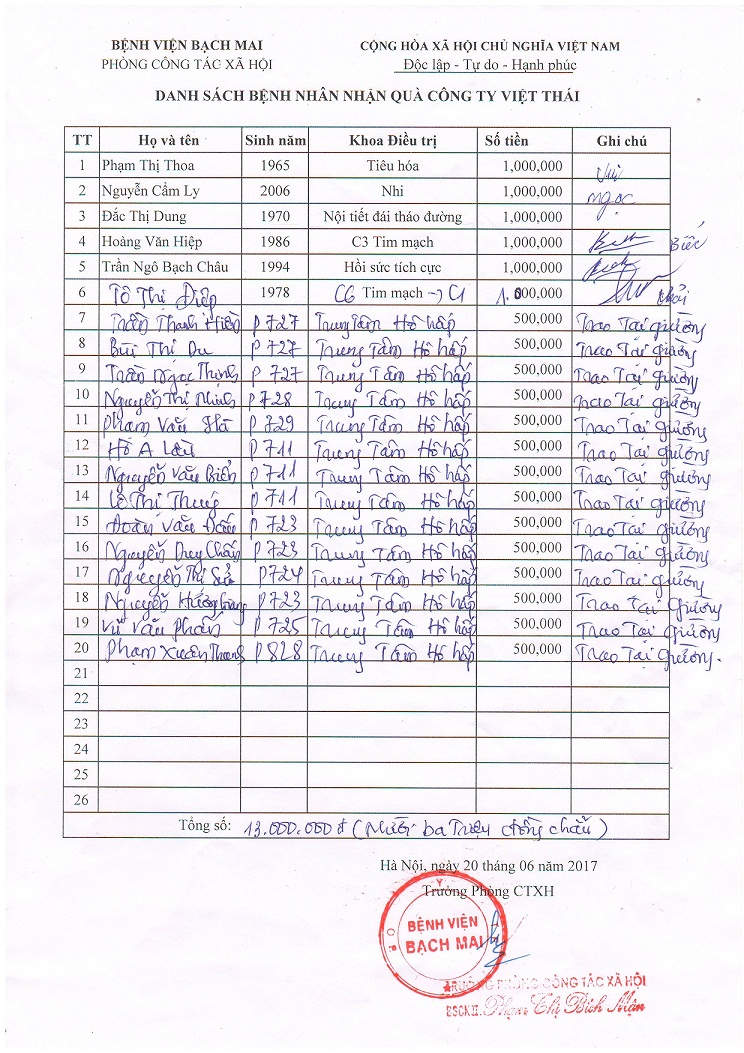 BỆNH VIỆN BẠCH MAI CỘNG HÒA XÃ HỘI CHỦ NGHĨA VIỆT NAM
PHÒNG CÔNG TÁC XÃ HỘI Độc lập - Tự do - Hạnh phúc
DANH SÁCH BỆNH NHÂN NHẬN QUÀ CÔNG TY VIỆT THÁI
TT Họ và tên Sinh năm Khoa Điều trị Số tiền Ghi chú
1 Phạm Thị Thoa 1965 Tiêu hóa 1,000,000
2 Nguyễn Cẩm Ly 2006 Nhi 1,000,000 Ngọc
3 Đắc Thị Dung 1970 Nội tiết đái tháo đường 1,000,000
4 Hoàng Văn Hiệp 1986 C3 Tim mạch 1,000,000
5 Trần Ngô Bạch Châu 1994 Hồi sức tích cực 1,000,000
6 Tô Thị Điệp 1978 C6 Tim mạch → C1 1.000,000
7 Trần Thanh Hiền P727 Trung Tâm Hô hấp 500,000 Trao Tại giường
8 Bùi Thị Du P727 Trung Tâm Hô hấp 500,000 Trao Tại giường
9 Trần Ngọc Thịnh P727 Trung Tâm Hô hấp 500,000 Trao Tại giường
10 Nguyễn Thị P728 Trung Tâm Hô hấp 500,000 Trao Tại giường
11 Phạm Văn Hà P729 Trung Tâm Hô hấp 500,000 Trao Tại giường
12 Hồ A P711 Trung Tâm Hô hấp 500,000 Trao Tại giường
13 Nguyễn Văn Biển P711 Trung Tâm Hô hấp 500,000 Trao Tại giường
14 Lê Thị P711 Trung Tâm Hô hấp 500,000 Trao Tại giường
15 Đoàn Văn P723 Trung Tâm Hô hấp 500,000 Trao Tại giường
16 Nguyễn Duy P723 Trung Tâm Hô hấp 500,000 Trao Tại giường
17 Nguyễn Thị P724 Trung Tâm Hô hấp 500,000 Trao Tại giường
18 Nguyễn Hương Giang P723 Trung Tâm Hô hấp 500,000 Trao Tại giường
19 Vũ Văn P725 Trung Tâm Hô hấp 500,000 Trao Tại giường
20 Phạm Xuân P828 Trung Tâm Hô hấp 500,000 Trao Tại giường.
21
22
23
24
25
26
Tổng số: 13.000.000đ (Mười ba Triệu đồng chẵn)
Hà Nội, ngày 20 tháng 06 năm 2017
Trưởng Phòng CTXH
BỆNH VIỆN
BẠCH MAI
TRƯỞNG PHÒNG CÔNG TÁC XÃ HỘI
BSCKII. Phạm Thị Bích Mận